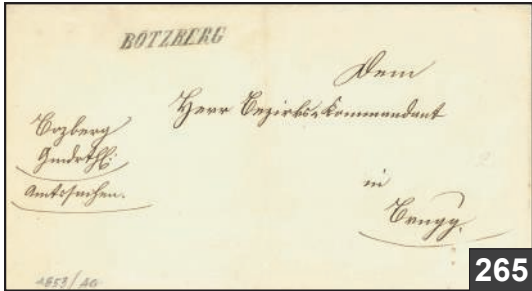 BÖTZBERG
Dem
Herr Bezirks-Kommandant
Bozberg
Gmdrth:
Amtssachen.
in
Brugg.
1853 / AG
265